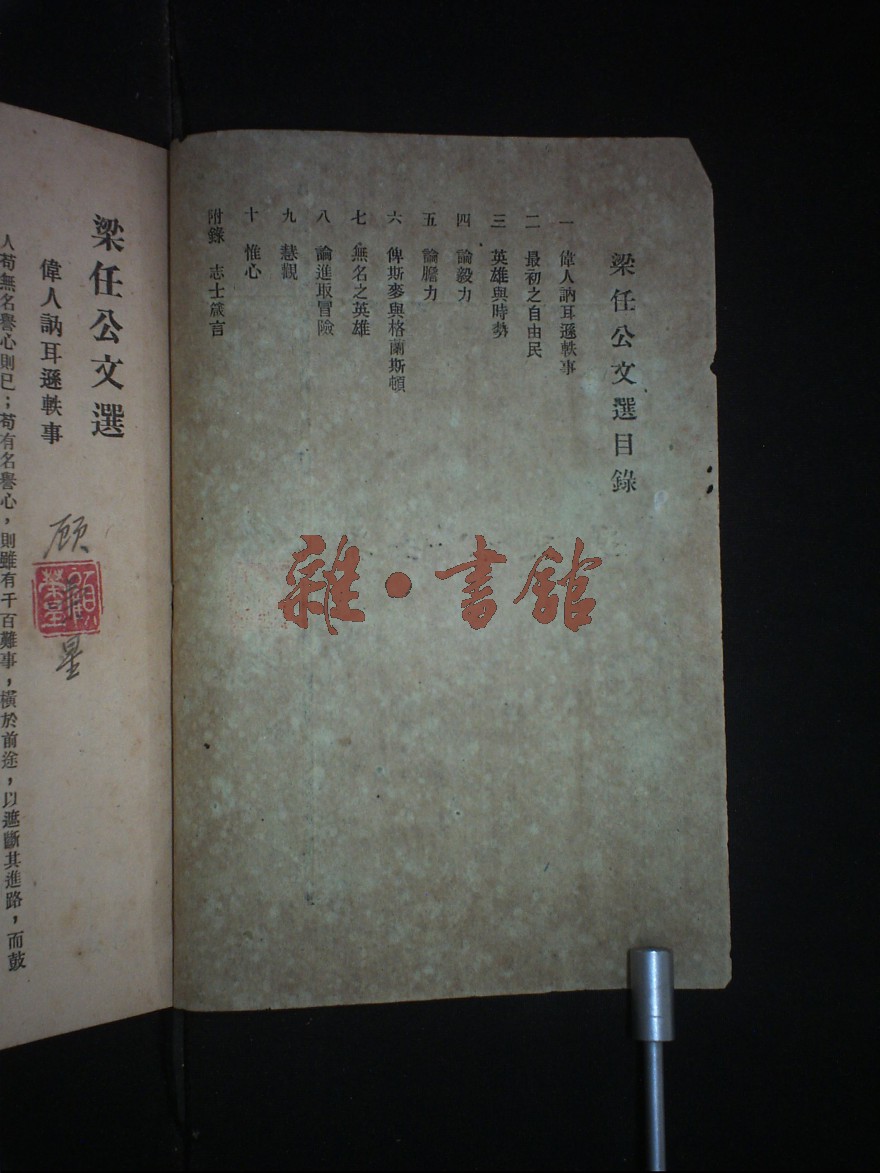 梁任公文選目錄
一 偉人訥耳遜軼事
二 最初之自由民
三 英雄與時勢
四 論毅力
五 論膽力
六 俾斯麥與格蘭斯頓
七 無名之英雄
八 論進取冒險
九 慧觀
十 惟心
附錄 志士箴言
雜·書館
梁任公文選
偉人訥耳遜軼事
顾
星
人苟無名譽心則已；苟有名譽心，則雖有千百難事，橫於前途，以遮斷其進路，而鼓